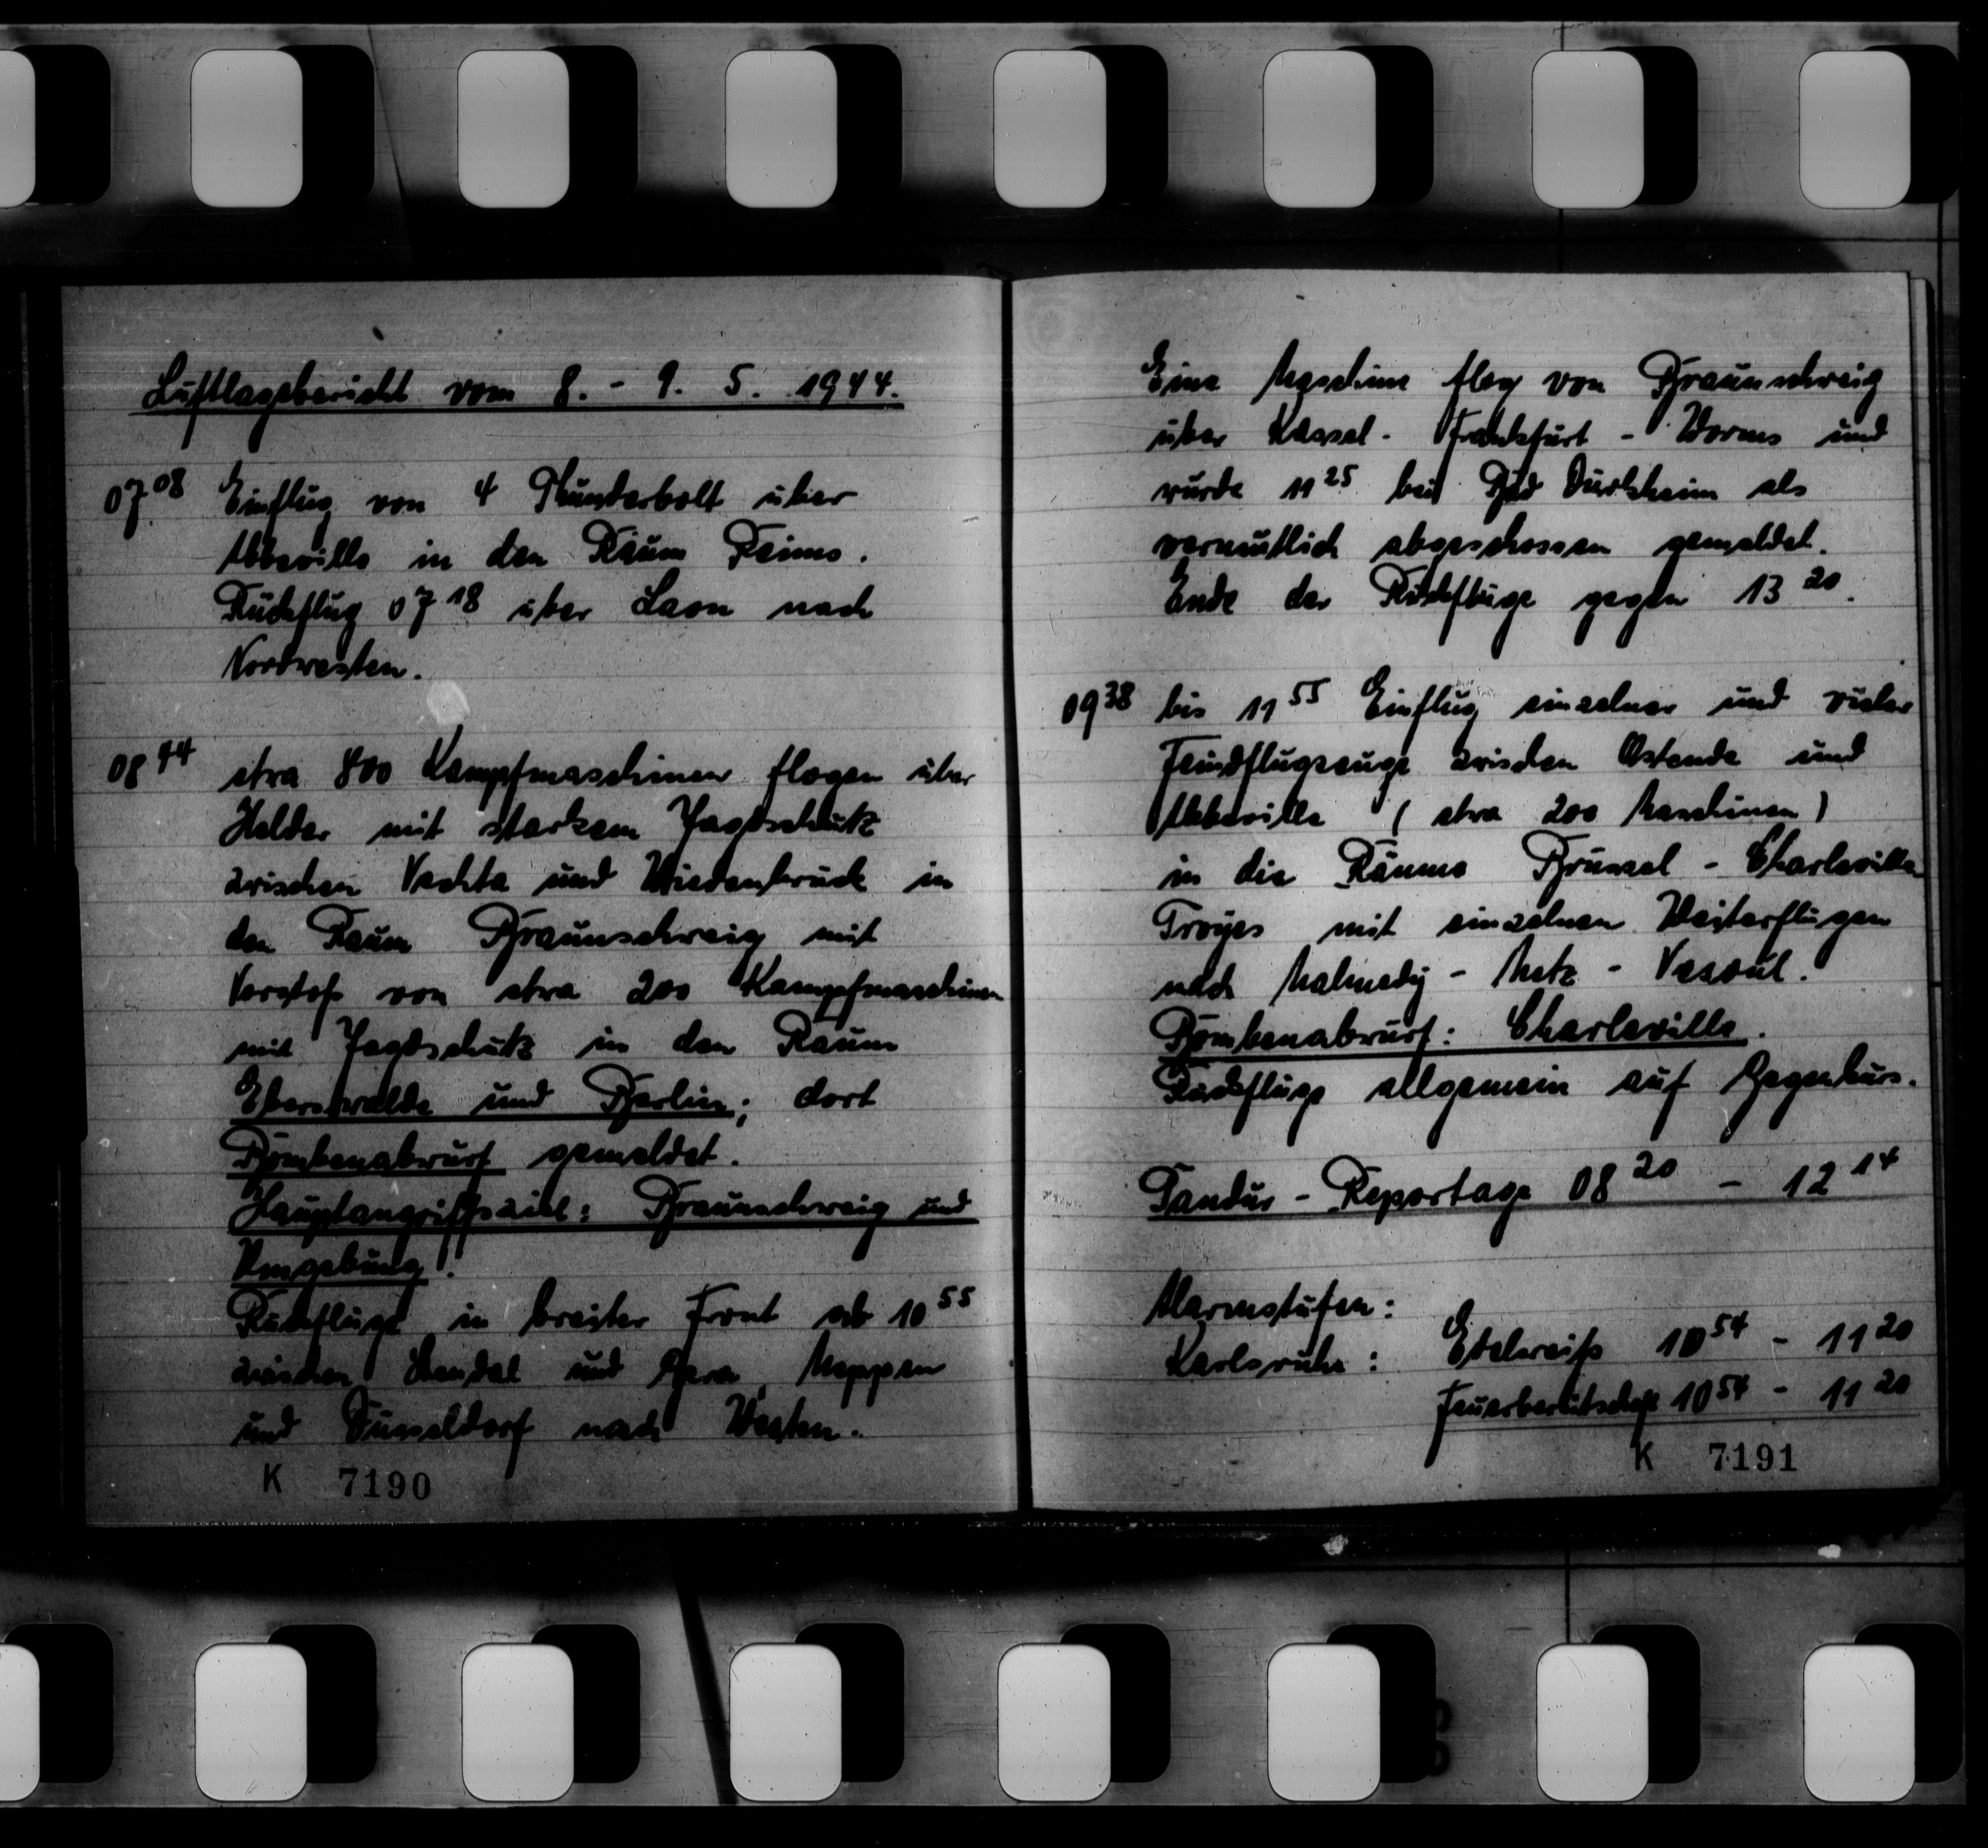 Luftlagebericht vom 8. - 9. 5. 1944.
07 08 Einflug von 4 Thunderbolt über
Abbeville in den Raum Reims.
Rückflug 07 18 über Laon nach
Nordwesten.
08 44 etwa 800 Kampfmaschinen flogen über
Helder mit starkem Jagdschutz
zwischen Vechta und Wiedenbrück in
den Raum Braunschweig mit
Vorstoß von etwa 200 Kampfmaschinen
mit Jagdschutz in den Raum
Eberswalde und Berlin; dort
Bombenabwurf gemeldet.
Hauptangriffsziel: Braunschweig und
Umgebung!
Rückflüge in breiter Front ab 10 55
zwischen Stendal und Gera, Meppen
und Düsseldorf nach Westen.
K 7190
Eine Maschine flog von Braunschweig
über Kassel - Frankfurt - Worms und
wurde 11 25 bei Bad Dürkheim als
vermutlich abgeschossen gemeldet.
Ende der Rückflüge gegen 13 20.
09 38 bis 11 55 Einflug einzelner und vieler
Feindflugzeuge zwischen Ostende und
Abbeville (etwa 200 Maschinen)
in die Räume Brüssel - Charleville
Troyes mit einzelnen Weiterflügen
nach Malmedy - Metz - Vesoul.
Bombenabwurf: Charleville.
Rückflüge allgemein auf Gegenkurs.
Tandur - Reportage 08 20 - 12 14
Alarmstufen:
Karlsruhe: Edelweiß 10 54 - 11 20
Feuerbereitschaft 10 54 - 11 20
K 7191